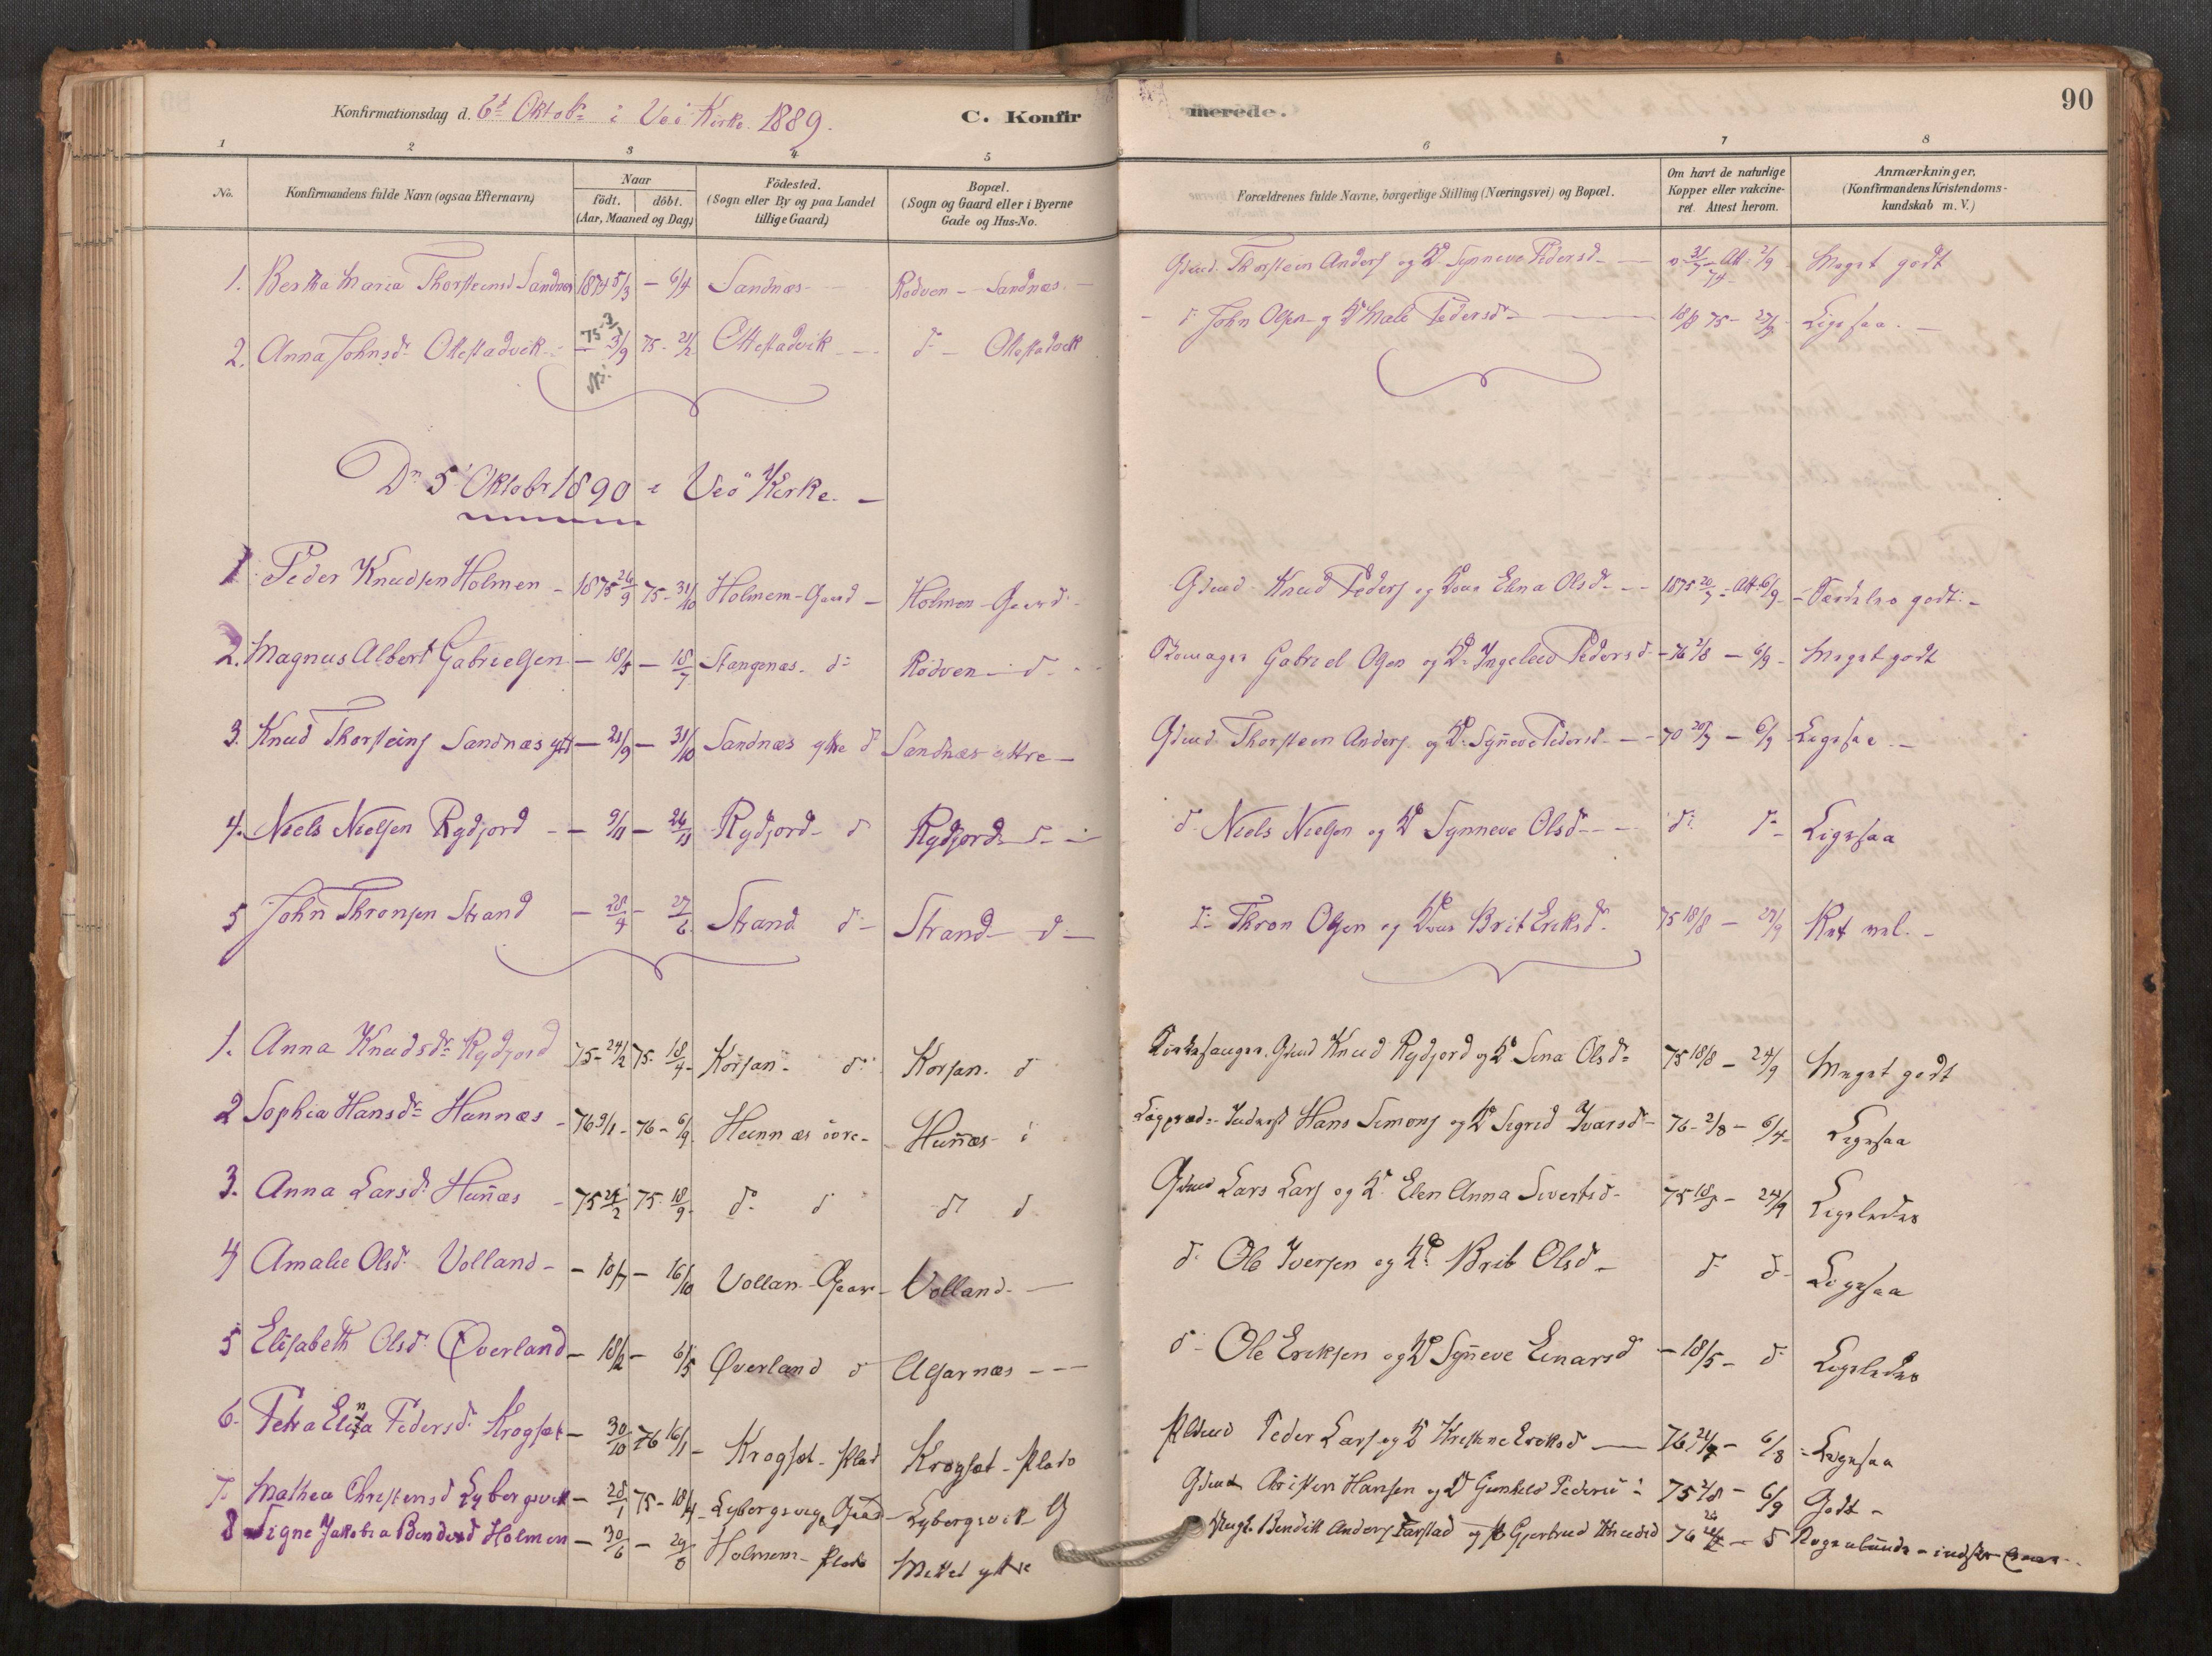 Konfirmationsdag d. 6t Oktobr i Veö Kirke 1889.
C. Konfirmerede.
90
1 2 3 4 5 6 7 8
No.
Konfirmandens fulde Navn (ogsaa Efternavn)
Naar
födt. döbt.
(Aar, Maaned og Dag)
Födested.
(Sogn eller By og paa Landet
tillige Gaard)
Bopæl.
(Sogn og Gaard eller i Byerne
Gade og Hus-No.
Forældrenes fulde Navne, borgerlige Stilling (Næringsvei) og Bopæl.
Om havt de naturlige
Kopper eller vakcine-
ret. Attest herom.
Anmærkninger,
(Konfirmandens Kristendoms-
kundskab m. V.)
1. Bertha Maria Thorsteinsd Sandnes 1874 5/3 — 6/4 Sandnæs Rødven - Sandnæs Gdmd. Thorstein Anders og K Synneve Pedersd Att 2/9 Meget godt
2. Anna Johnsdr Ottestadvik 75 3/9 75 - 21/2 Ottestadvik d - Ottestadvik d John Olsen og K Mali Pedersd 18/8 75 - 27/9 Ligesaa.
Dn 5 Oktobr 1890 i Veö Kirke. —
1 Peder Knudsen Holmen - 1875 26/9 75 - 31/10 Holmem - Gaard - Holmen - Gaard Gdmd Knud Peders og Kone Elina Olsd 1875 20/7 - Att 6/9 - Særdeles godt -
2. Magnus Albert Gabrielsen — 18/5 — 18/7 Stangenæs. d Rödven - d Skomager Gabriel Olsen og K Ingeleiv Pedersd - 76 2/8 — 6/9 - Meget godt
3. Knud Thorsteins Sandnæs ytr — 21/9 — 31/10 Sandnæs ytre d Sandnæs ytre — Gdmd. Thorstein Anders og K. Syn̄eve Pedersd 70 20/7 — 6/9 Ligesaa
4. Niels Nielsen Rydjord — 9/11 — 26/11 Rydjord d Rydjord d d Niels Nielsen og K Synneve Olsd d d Ligesaa
5 John Thronsen Strand — 28/4 — 27/6 Strand d Strand d — d Thron Olsen og Kone Brit Eriksd 75 18/8 — 27/9 Ret vel.
1. Anna Knudsdr Rydjord 75 - 24/2 75 - 18/4 Korsan - d Korsan. d Kirkesanger. Gdmd Knud Rydjord og K Sina Olsd 75 18/8 - 24/9 Meget godt
2 Sophia Hansdr Hunnæs - 76 9/1 - 76 - 6/9 Hunnæs övre - Hun̄æs Hans Simons og K Sigrid Ivarsd - 76 - 2/8 - 6/4 Ligesaa
3. Anna Larsd. Hun̄æs - 75 24/2 75 18/9 do d d d Gdmd Lars Lars og K. Elen Anna Sivertsd 75 18/8 - 24/9 Ligeledes
4 Amalie Olsd. Volland - — 10/7 — 16/10 Vollan - Gaar - Volland - d Ole Iversen og K. Brit Olsd d d Ligesaa
5 Elisabeth Olsd. Øverland — 18/2 — 6/5 Øverland d Alfarnæs d Ole Eriksen og K Syn̄eve Einarsd — 18/5 - d Ligeledes
6. Petra Elina Pedersd. Krogset — 30/10 76 16/1 - Krogset - Plads Krogset - Plads Pldmd Peder Lars og K Kristine Eriksd — 76 - 6/8 - Ligesaa
7. Mathea Christensd Lybergsvik — 28/1 75 - 18/4 Lybergsvig Gaard Lybergsvik G Gdmd Christen Hansen og K Gunhild Pedersd 75 2/8 - 6/9 Godt -
8 Signe Jakobia Bendiksd Holmen — 30/6 — 29/8 Holmem - Plads Mittet ytre Bendik Anders Farstad og Gjertrud Knudsd 76 — 5